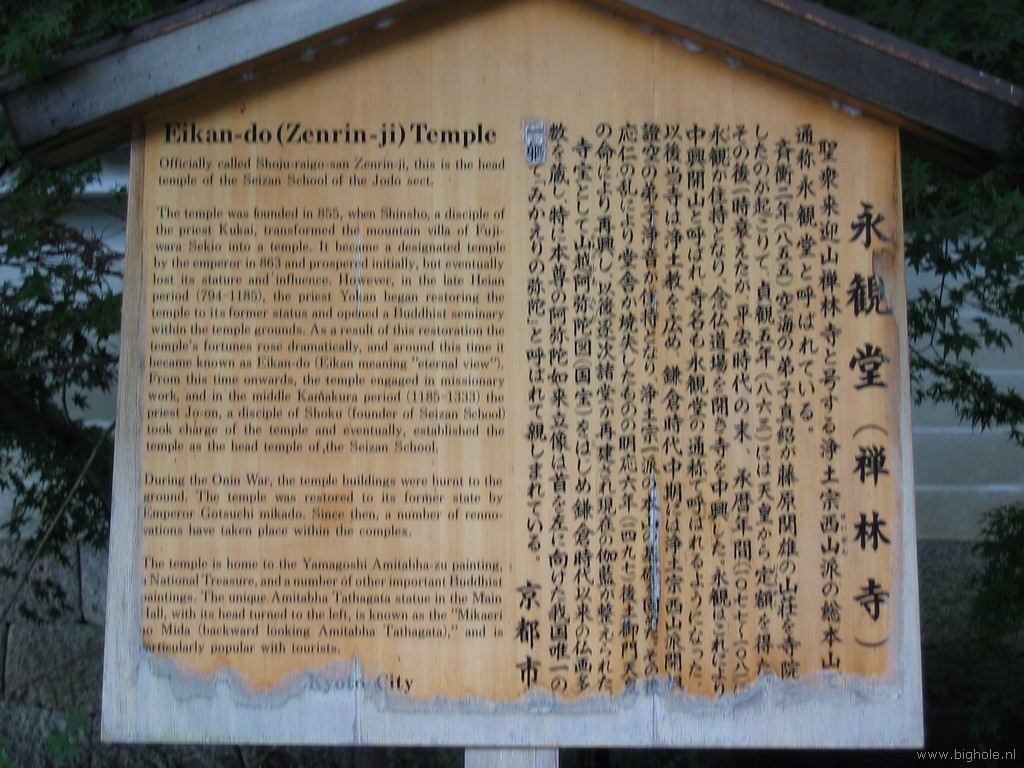 Eikan-do (Zenrin-ji) Temple
Officially called Shoju-raigo-san Zenrin-ji, this is the head
temple of the Seizan School of the Jodo sect.
The temple was founded in 855, when Shinsho, a disciple of
the priest Kukai, transformed the mountain villa of Fuji-
wara Sekio into a temple. It became a designated temple
by the emperor in 863 and prospered initially, but eventually
lost its stature and influence. However, in the late Heian
period (794-1185), the priest Yokan began restoring the
temple to its former status and opened a Buddhist seminary
within the temple grounds. As a result of this restoration the
temple's fortunes rose dramatically, and around this time it
became known as Eikan-do (Eikan meaning "eternal view").
From this time onwards, the temple engaged in missionary
work, and in the middle Kamakura period (1185-1333) the
priest Jo-on, a disciple of Shoku (founder of Seizan School)
took charge of the temple and eventually, established the
temple as the head temple of the Seizan School.
During the Onin War, the temple buildings were burnt to the
ground. The temple was restored to its former state by
Emperor Gotsuchi mikado. Since then, a number of reno-
vations have taken place within the complex.
The temple is home to the Yamagoshi Amitabha-zu painting,
a National Treasure, and a number of other important Buddhist
paintings. The unique Amitabha Tathagata statue in the Main
Hall, with its head turned to the left, is known as the "Mikaeri
Mida (backward looking Amitabha Tathagata)," and is
particularly popular with tourists.
Kyoto City
永観堂(禅林寺)
聖衆来迎山禅林寺と号する浄土宗西山派の総本山
通称永観堂と呼ばれている。
斉衡二年(八五五)空海の弟子真紹が藤原関雄の山荘を寺院
としたのが起こりで、貞観五年(八六三)には天皇から定額を得た
その後一時衰えたが、平安時代の末、永暦年間(一〇七七〜一〇八一)
永観が住持となり、念仏道場を開き寺を中興した。永観はこれにより
中興開山と呼ばれ、寺名も永観堂の通称で呼ばれるようになった。
以後当寺は浄土教を広め、鎌倉時代中期には浄土宗西山派開祖
證空の弟子浄音が住持となり、浄土宗
応仁の乱により堂舎が焼失したものの明応六年(一四九七)後土御門天皇
の命により再興し、以後逐次諸堂が再建され現在の伽藍が整えられた
寺宝として山越阿弥陀図(国宝)をはじめ鎌倉時代以来の仏画多
数を蔵し、特に本尊の阿弥陀如来立像は首を左に向けた我国唯一の
てみかえりの弥陀」と呼ばれて親しまれている。
京都市
www.bighole.nl